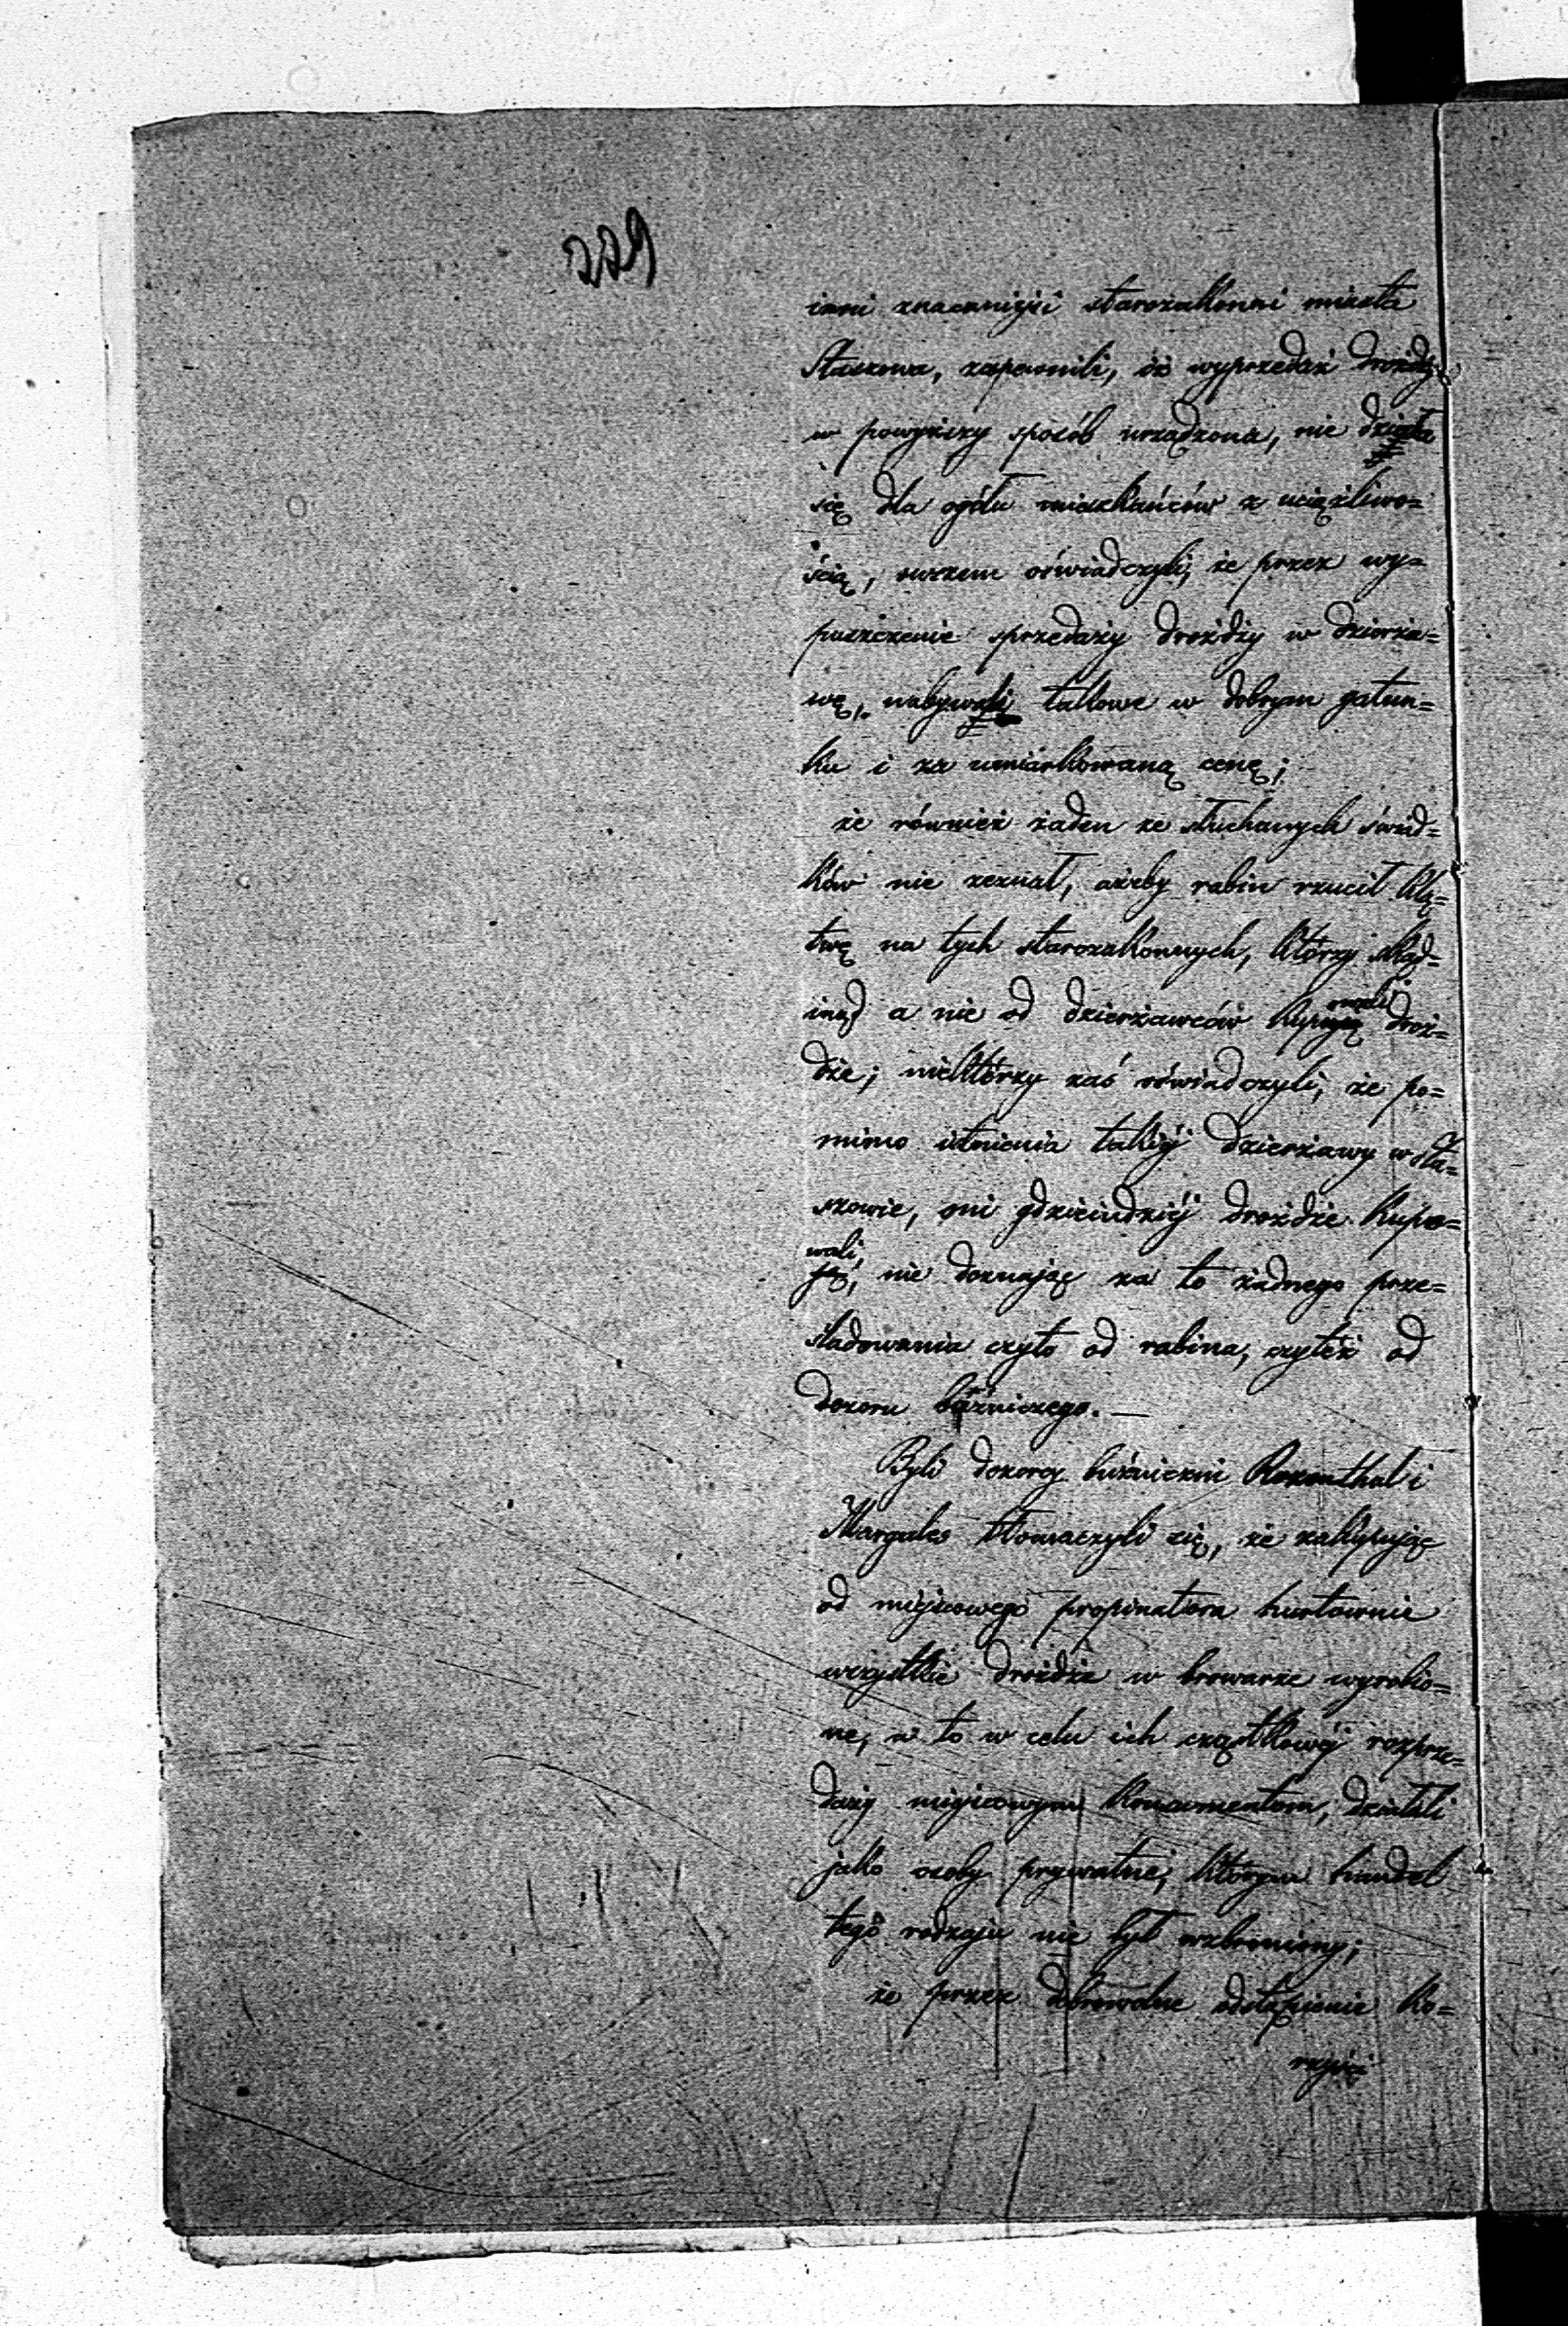 229
inni znaczniejsi starozakonni miasta
Staszowa, zapewnili, iż wyprzedaż drożdży
w powyższy sposób urządzona, nie działa
się dla ogółu mieszkańców z uciążliwo=
ścią, owszem oświadczyli, że przez wy=
puszczenie sprzedaży drożdży w dzierża=
wę, nabywali takowe w dobrym gatun=
ku i za umiarkowaną cenę;
że również żaden ze słuchanych świad=
ków nie zeznał, ażeby rabin rzucił klą=
twę na tych starozakonnych, którzy skąd=
inąd a nie od dzierżawców kupowali droż=
dże; niektórzy zaś oświadczyli, że po=
mimo istnienia takiéj dzierżawy w Sta=
szowie, oni gdzieindziéj drożdże kupo=
wali, nie doznając za to żadnego prze=
śladowania czyto od rabina, czyteż od
dozoru bóżniczego. —
Byli dozorcy bużniczni Rozenthal i
Margules tłomaczyli się, że zakupując
od miejscowego propinatora hurtownie
wszystkie drożdże w browarze wyrobio=
ne, a to w celu ich cząstkowéj rozprze=
daży miejscowym konsumentom, działali
jako osoby prywatne, którym handel
tego rodzaju nie był wzbroniony;
że przez dobrowolne odstąpienie ko=
rzyści